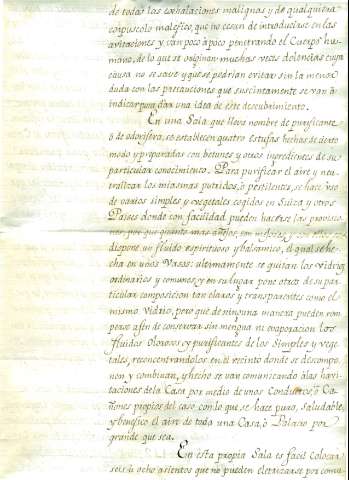 de todas las exhalaciones malignas y de qualquiera
corpusculo malefico, que no cesan de introducirse en las
avitaciones y van poco à poco penetrando el Cuerpo hu-
mano, de lo que se originan muchas veces dolencias cuya
causa no se save y que se podrian evitar sin la menor
duda con las precauciones que suscintamente se van à
indicar para dar una idea de este descubrimiento.
En una Sala que lleva nombre de purificante
ò de odorifera, se establecen quatro estufas hechas de cierto
modo y preparadas con betunes y otros ingredientes de su
particular conocimiento. Para purificar el aire y neu-
tralizar los miasmas putridos, ò pestilentes, se hace uso
de varios simples y vegetales cogidos en Suiza y otros
Paises donde con facilidad pueden hacerse las provisio-
nes, por que quanto mas añejos, son mejores, y con ellos se
dispone un fluido espirituoso y balsamico, el qual se he-
cha en unos Vasos: ultimamente se quitan los vidrios
ordinarios y comunes, y en su lugar pone otros de su par-
ticular composicion tan claros y transparentes como el
mismo Vidrio, pero que de ninguna manera pueden rom
perse afin de conservar sin mengua ni evaporacion los
fluidos Olorosos y purificantes de los Simples y vege-
tales, reconcentrandolos en el recinto donde se descompo-
nen y combinan, y hecho se van comunicando à las havi-
taciones de la Casa por medio de unos Conductos, ò Ca-
ñones propios del caso, con lo que se hace puro, saludable,
y benefico el aire de toda una Casa, ò Palacio por
grande que sea.
En esta propia Sala es facil colocar
seis ù ocho asientos que no pueden eletrizarse por comu